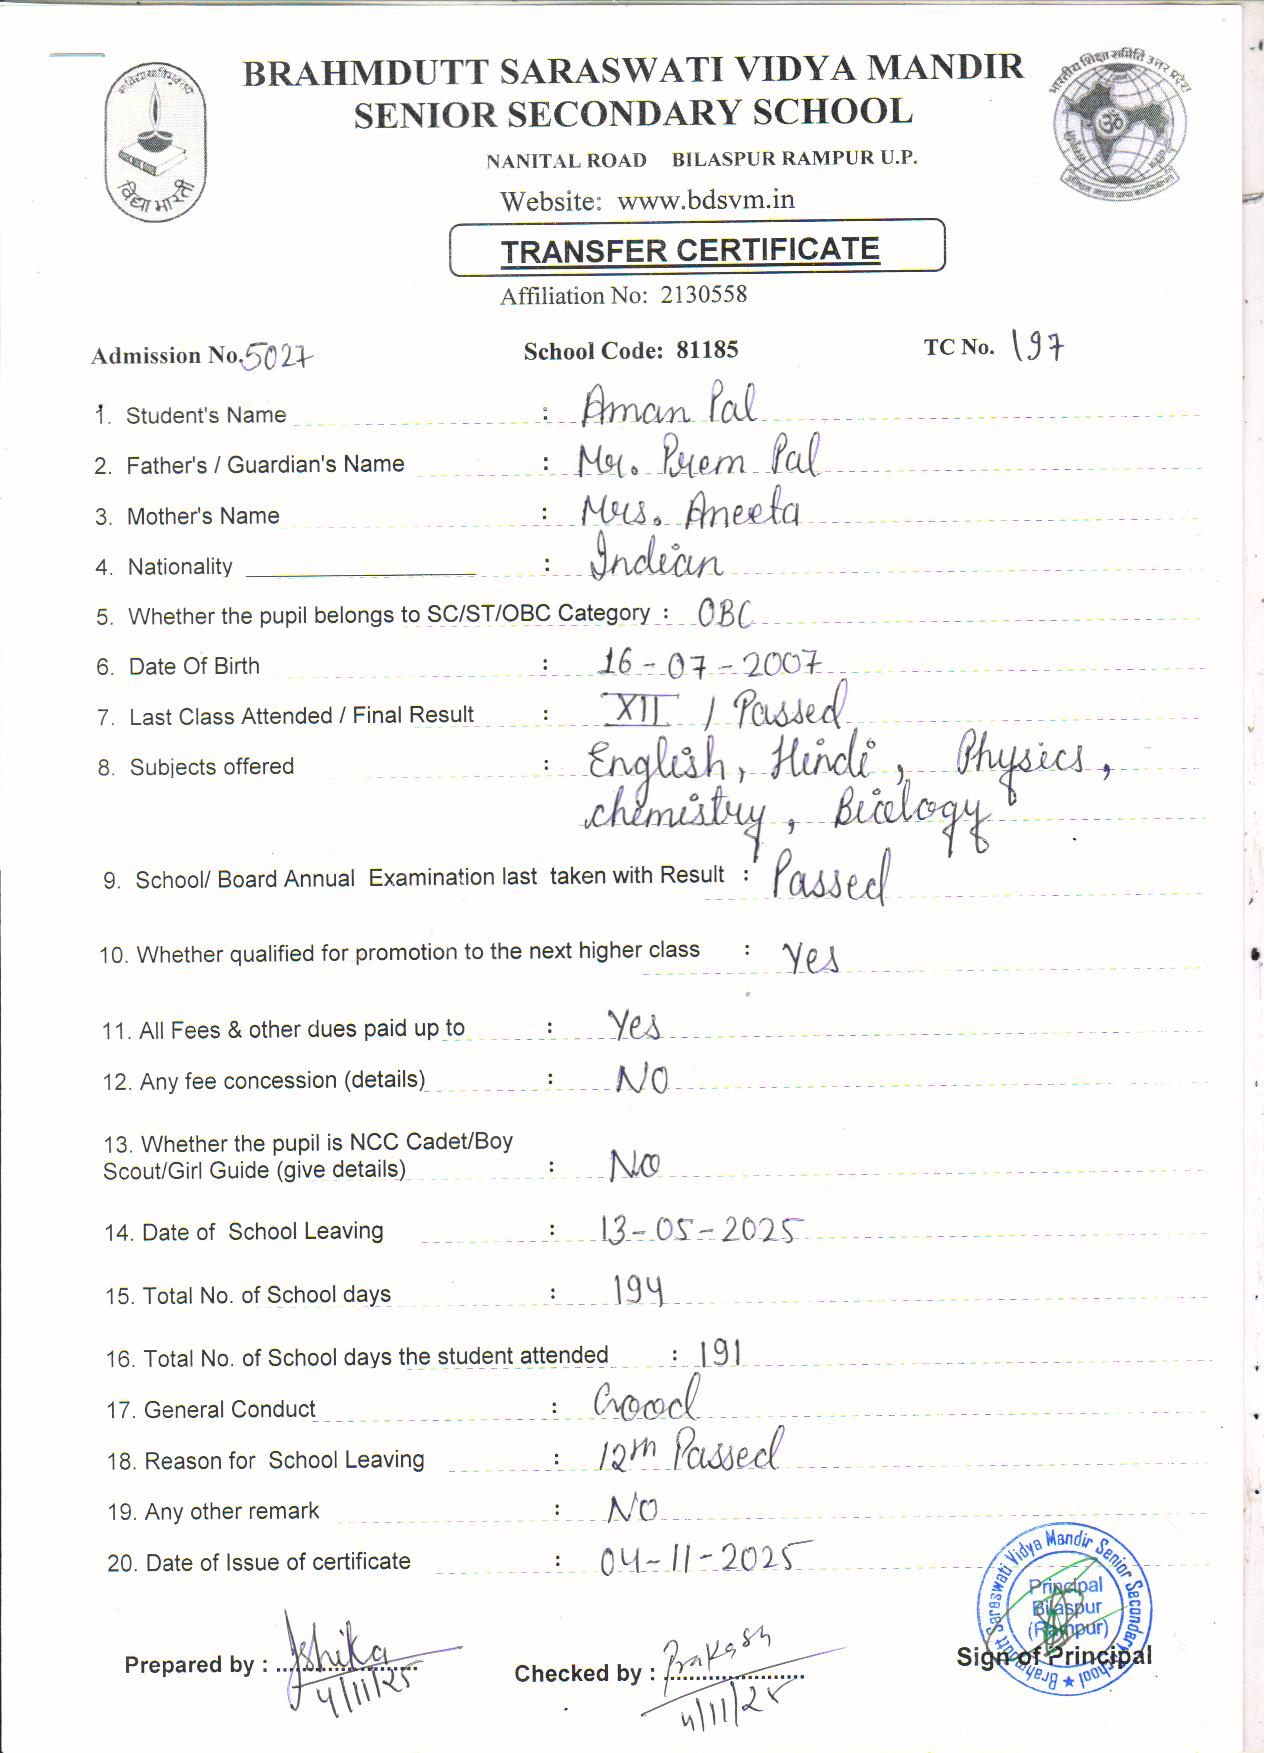 BRAHMDUTT SARASWATI VIDYA MANDIR
SENIOR SECONDARY SCHOOL
NANITAL ROAD BILASPUR RAMPUR U.P.
विद्या भारती
Website: www.bdsvm.in
TRANSFER CERTIFICATE
Affiliation No: 2130558
Admission No. 5027 School Code: 81185 TC No. 197
1. Student's Name : Aman Pal
2. Father's / Guardian's Name : Mr. Prem Pal
3. Mother's Name : Mrs. Aneeta
4. Nationality : Indian
5. Whether the pupil belongs to SC/ST/OBC Category : OBC
6. Date Of Birth : 16-07-2007
7. Last Class Attended / Final Result : XII / Passed
8. Subjects offered : English, Hindi, Physics,
chemistry, Biology
9. School/ Board Annual Examination last taken with Result : Passed
10. Whether qualified for promotion to the next higher class : Yes
11. All Fees & other dues paid up to : Yes
12. Any fee concession (details) : NO
13. Whether the pupil is NCC Cadet/Boy
Scout/Girl Guide (give details) : No
14. Date of School Leaving : 13-05-2025
15. Total No. of School days : 194
16. Total No. of School days the student attended : 191
17. General Conduct : Good
18. Reason for School Leaving : 12th Passed
19. Any other remark : NO
20. Date of Issue of certificate : 04-11-2025
Brahmdutt Saraswati Vidya Mandir Senior Secondary School
Principal
Bilaspur
(Rampur)
Prepared by : Ishika Checked by : Prakash Sign of Principal
4/11/25 4/11/25